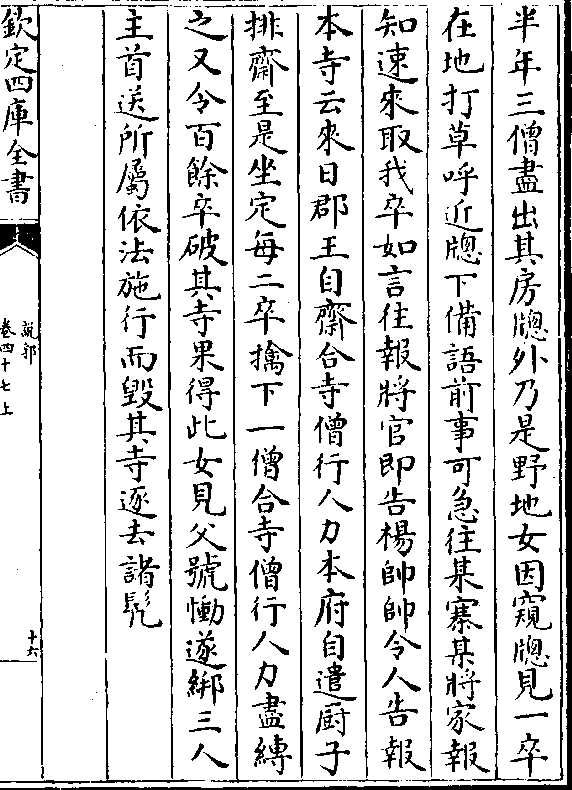 半年三僧盡出其房牕外乃是野地女因窺牕見一卒
在地打草呼近牕下備語前事可急往某寨某將家報
知速來取我卒如言往報將官即告楊帥帥令人告報
本寺云來日郡王自齋合寺僧行人力本府自遣厨子
排齋至是坐定每二卒擒下一僧合寺僧行人力盡縛
之又令百餘卒破其寺果得此女見父號慟遂綁三人
主首送所屬依法施行而毁其寺逐去諸髠
欽定四庫全書
說郛
卷四十七上
十六